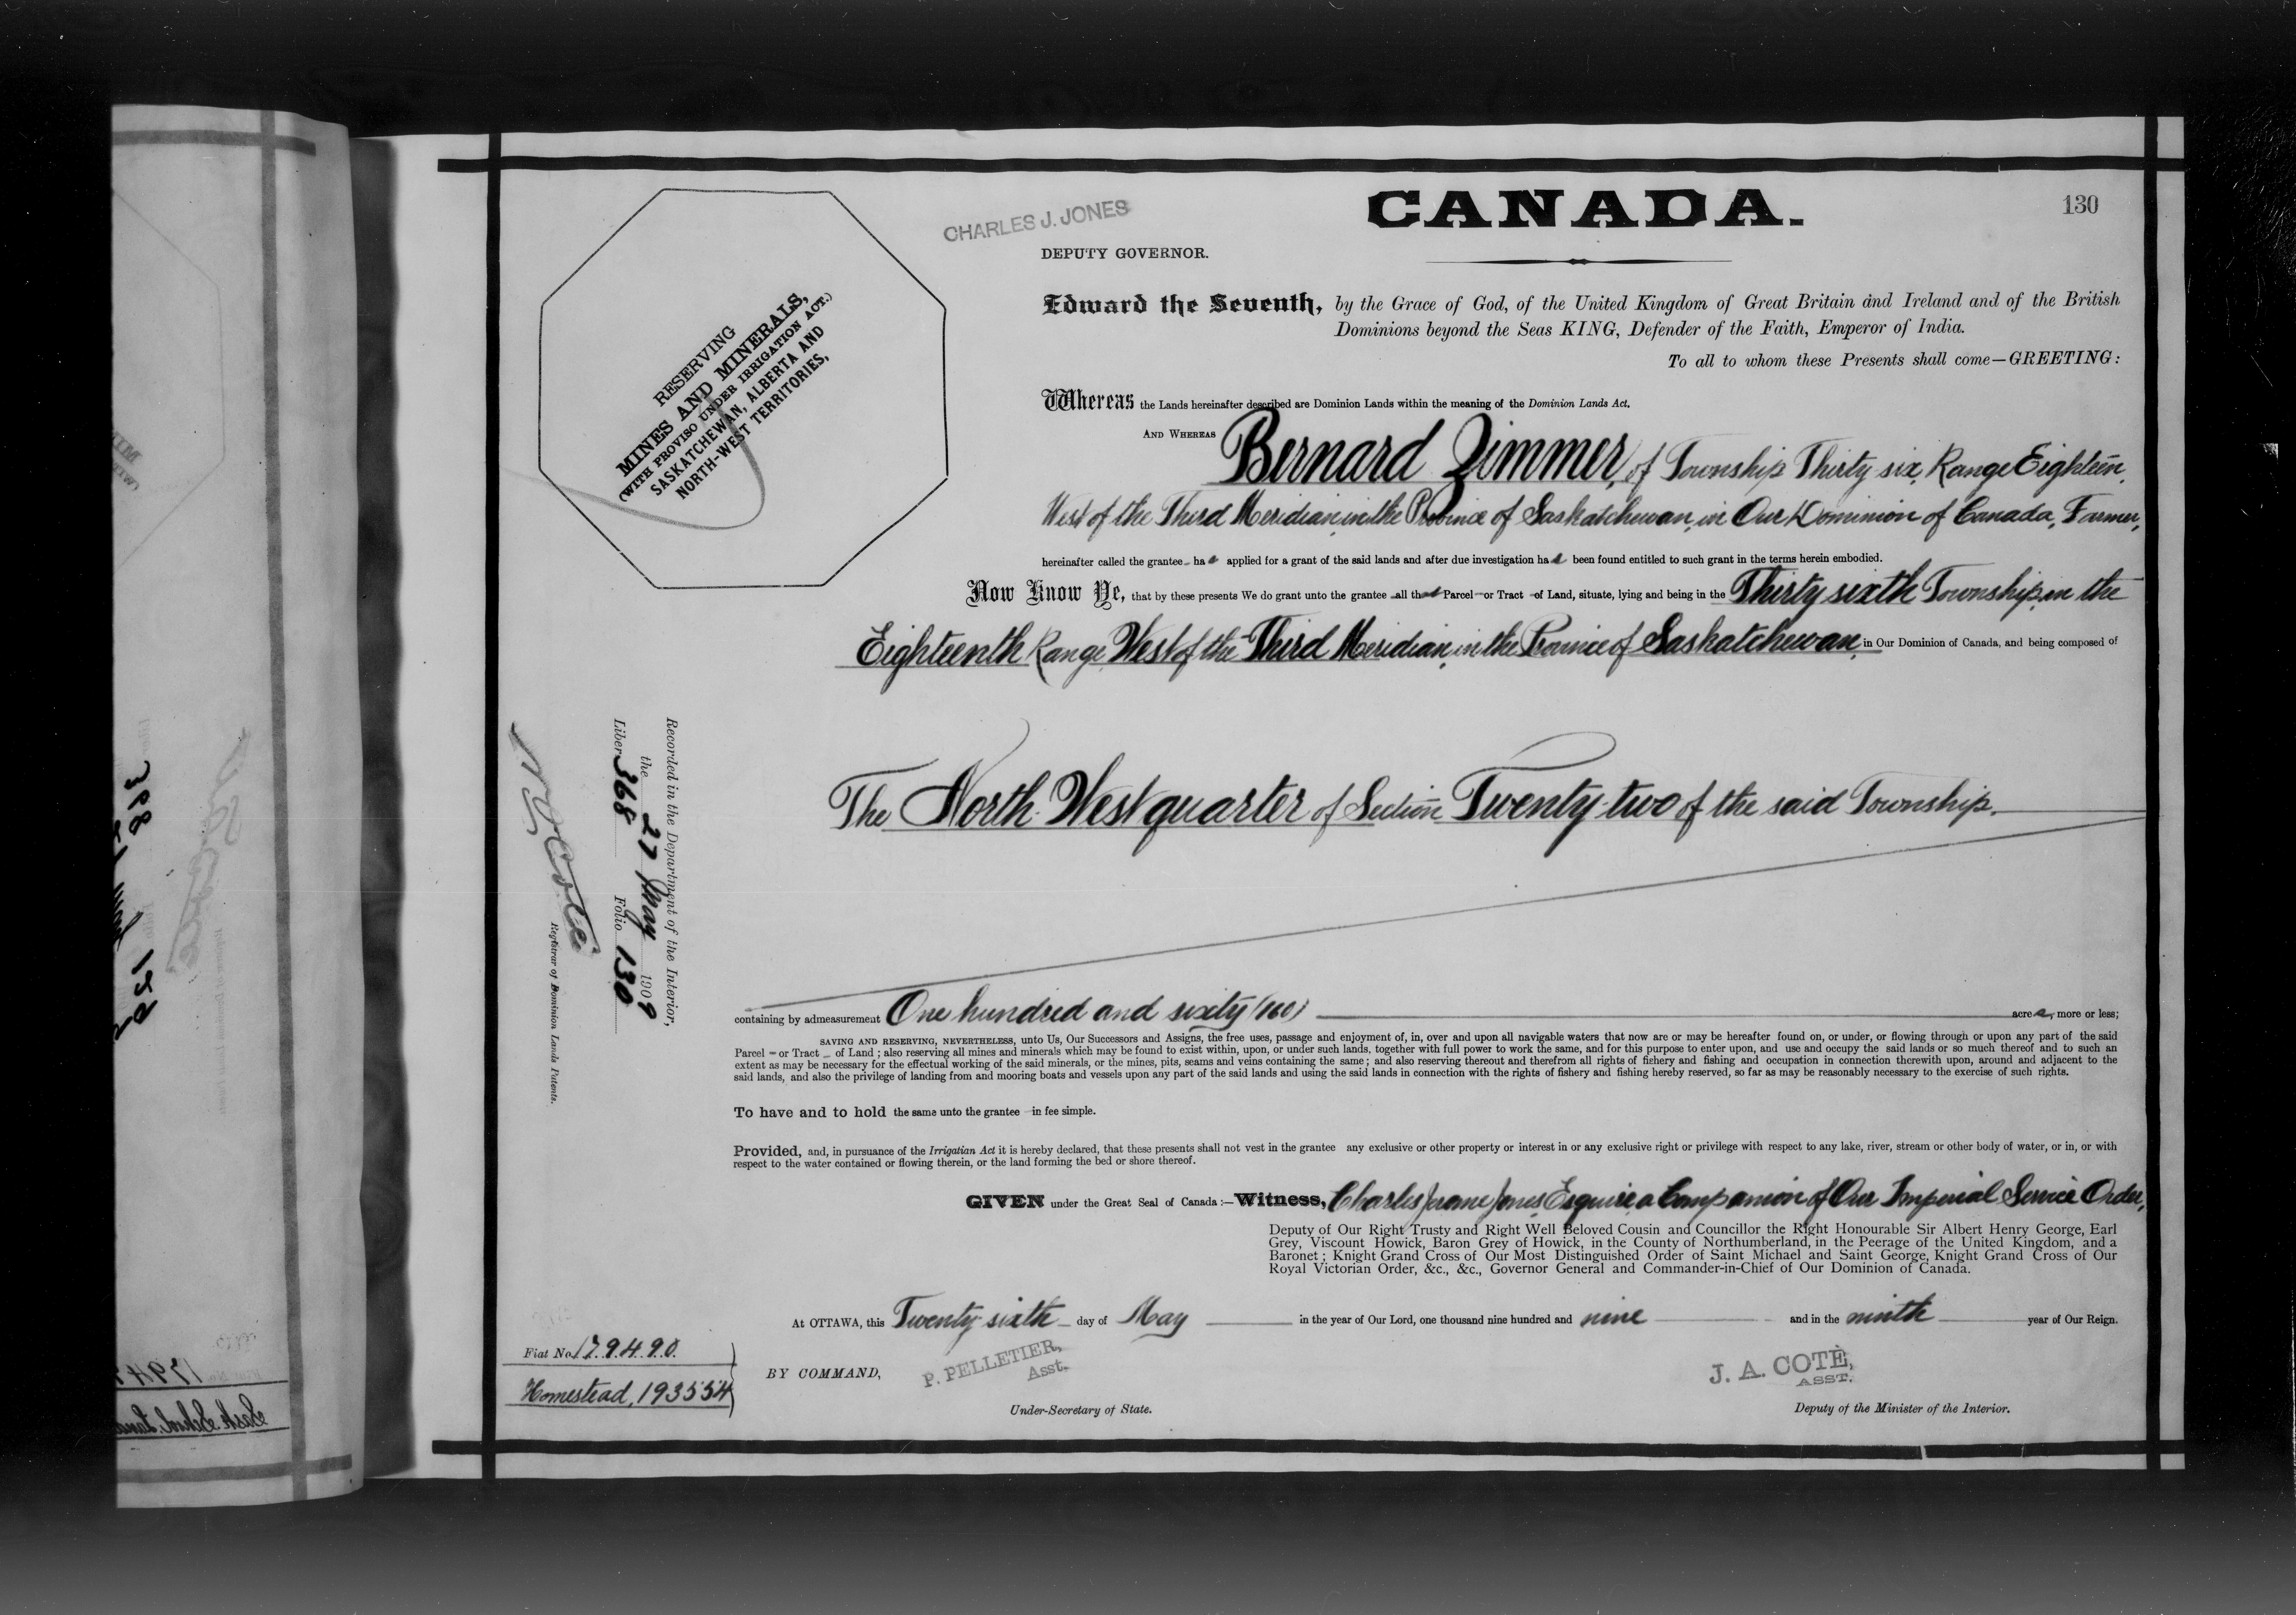 CANADA.
130
CHARLES J. JONES
DEPUTY GOVERNOR.
RESERVING
MINES AND MINERALS,
(WITH PROVISO UNDER IRRIGATION ACT.)
SASKATCHEWAN, ALBERTA AND
NORTH-WEST TERRITORIES,
Edward the Seventh, by the Grace of God, of the United Kingdom of Great Britain and Ireland and of the British
Dominions beyond the Seas KING, Defender of the Faith, Emperor of India.
To all to whom these Presents shall come—GREETING:
Whereas the Lands hereinafter described are Dominion Lands within the meaning of the Dominion Lands Act.
AND WHEREAS Bernard Zimmer, of Township Thirty six, Range Eighteen,
West of the Third Meridian, in the Province of Saskatchewan, in Our Dominion of Canada, Farmer,
hereinafter called the grantee has applied for a grant of the said lands and after due investigation has been found entitled to such grant in the terms herein embodied.
Now Know Ye, that by these presents We do grant unto the grantee all that Parcel or Tract of Land, situate, lying and being in the Thirty sixth Township, in the
Eighteenth Range, West of the Third Meridian, in the Province of Saskatchewan, in Our Dominion of Canada, and being composed of
The North West quarter of Section Twenty-two of the said Township.
containing by admeasurement One hundred and sixty (160) acres, more or less;
SAVING AND RESERVING, NEVERTHELESS, unto Us, Our Successors and Assigns, the free uses, passage and enjoyment of, in, over and upon all navigable waters that now are or may be hereafter found on, or under, or flowing through or upon any part of the said
Parcel or Tract of Land ; also reserving all mines and minerals which may be found to exist within, upon, or under such lands, together with full power to work the same, and for this purpose to enter upon, and use and occupy the said lands or so much thereof and to such an
extent as may be necessary for the effectual working of the said minerals, or the mines, pits, seams and veins containing the same ; and also reserving thereout and therefrom all rights of fishery and fishing and occupation in connection therewith upon, around and adjacent to the
said lands, and also the privilege of landing from and mooring boats and vessels upon any part of the said lands and using the said lands in connection with the rights of fishery and fishing hereby reserved, so far as may be reasonably necessary to the exercise of such rights.
To have and to hold the same unto the grantee in fee simple.
Provided, and, in pursuance of the Irrigatian Act it is hereby declared, that these presents shall not vest in the grantee any exclusive or other property or interest in or any exclusive right or privilege with respect to any lake, river, stream or other body of water, or in, or with
respect to the water contained or flowing therein, or the land forming the bed or shore thereof.
GIVEN under the Great Seal of Canada :—Witness, Charles Jerome Jones, Esquire, a Companion of Our Imperial Service Order,
Deputy of Our Right Trusty and Right Well Beloved Cousin and Councillor the Right Honourable Sir Albert Henry George, Earl
Grey, Viscount Howick, Baron Grey of Howick, in the County of Northumberland, in the Peerage of the United Kingdom, and a
Baronet ; Knight Grand Cross of Our Most Distinguished Order of Saint Michael and Saint George, Knight Grand Cross of Our
Royal Victorian Order, &c., &c., Governor General and Commander-in-Chief of Our Dominion of Canada.
At OTTAWA, this Twenty sixth day of May in the year of Our Lord, one thousand nine hundred and nine and in the ninth year of Our Reign.
BY COMMAND,
P. PELLETIER,
Asst.
Under-Secretary of State.
J. A. COTÈ,
ASST.
Deputy of the Minister of the Interior.
Fiat No. 179490.
Homestead, 193554
Recorded in the Department of the Interior,
the 27 May 1909
Liber 368 Folio 130
Registrar of Dominion Lands Patents.